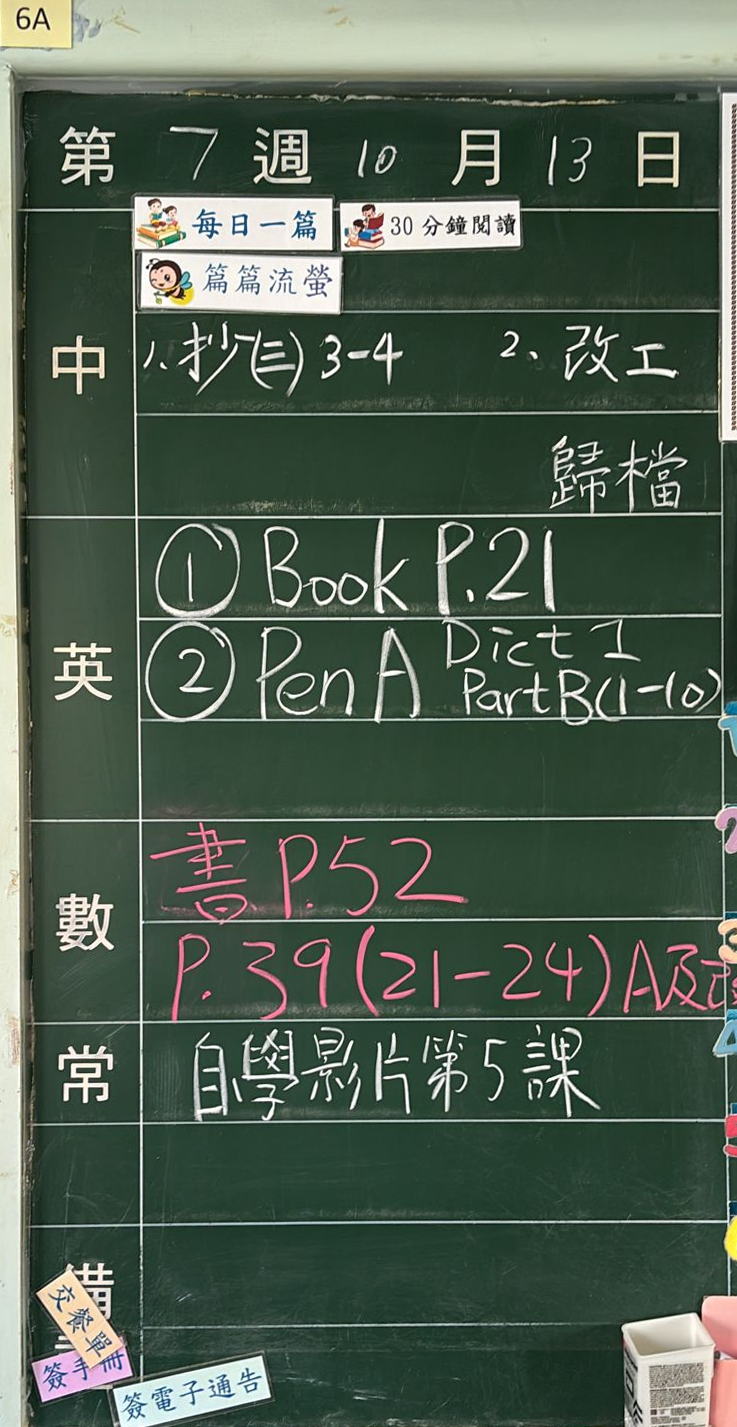 6A
第 7 週 10 月 13 日
每日一篇 30分鐘閱讀
篇篇流螢
中
1、抄(三) 3-4 2、改工
歸檔
英
① Book P.21
② Pen A Dict 1
Part B (1-10)
數
書 P.52
P. 39 (21-24) A及改
常
自學影片第5課
備
交餐單
簽手冊
簽電子通告